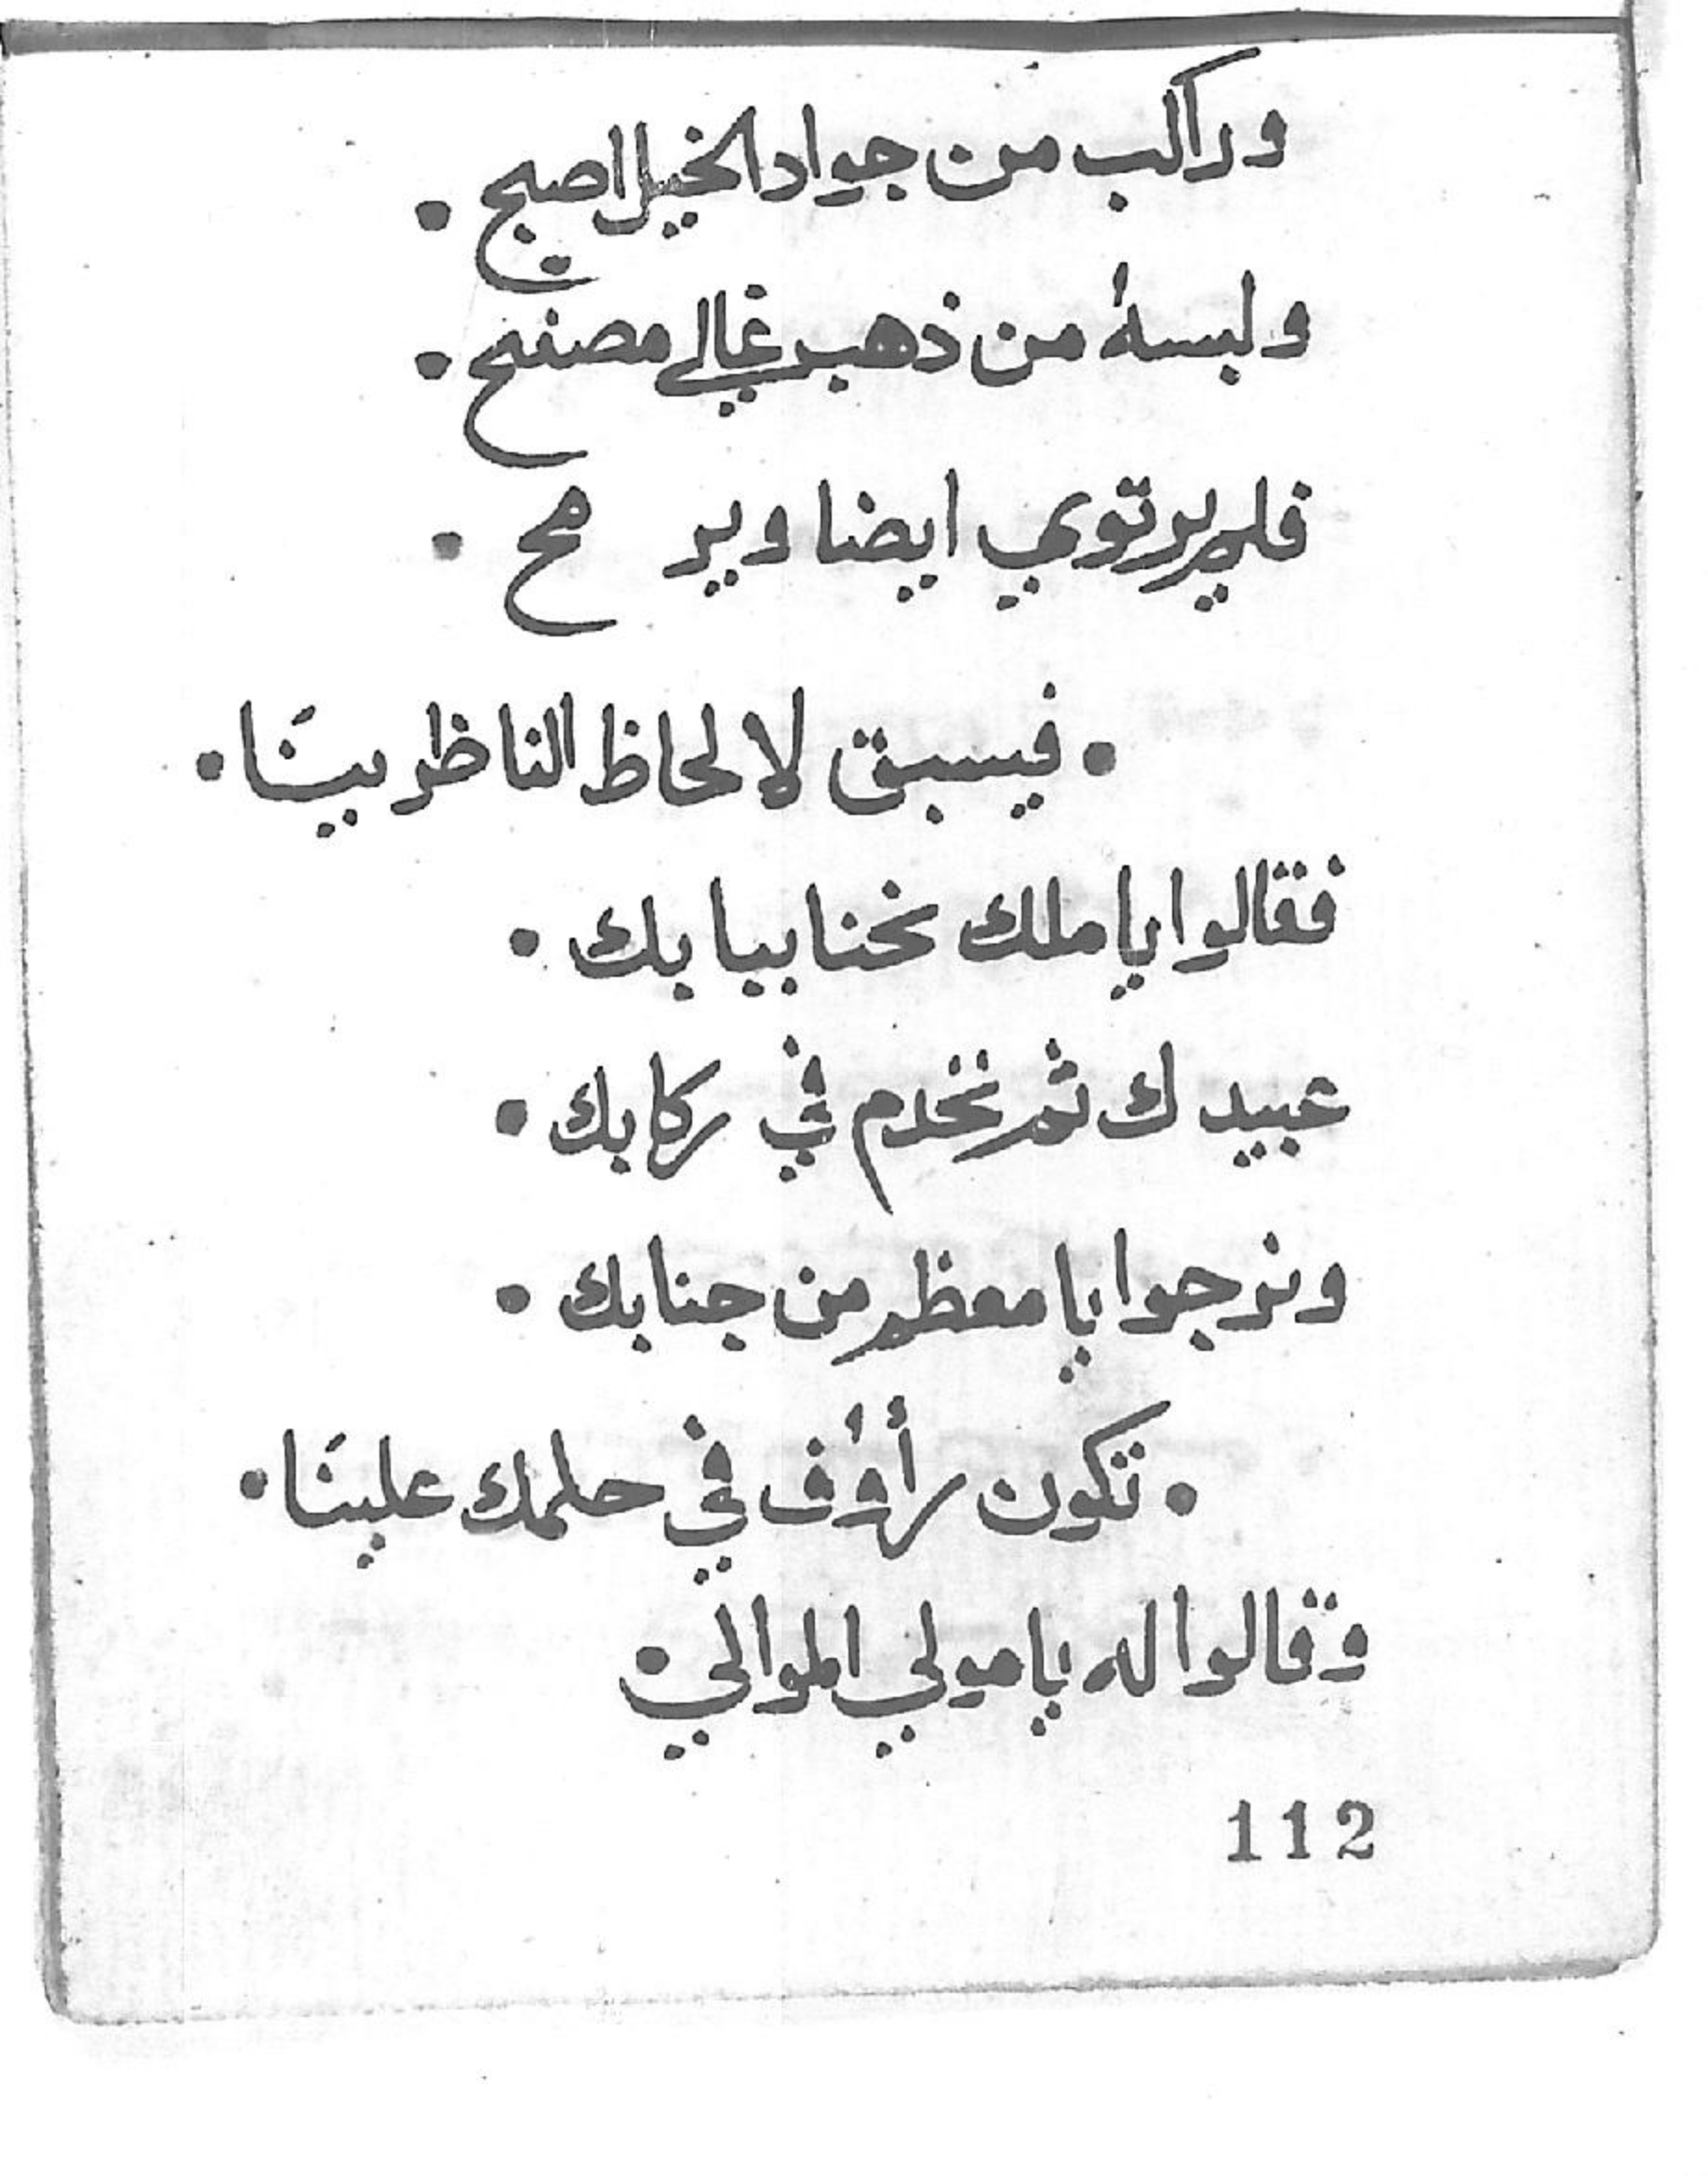 وراكب من جواد الخيل اصبح •
ولبسهُ من ذهب غالي مصفح •
فلم يرتوي ايضا وير مح •
• فيسبق لا لحاظ الناظرينَا •
فقالوا يا ملك نحنا ببابك •
عبيدك ثم نخدم في ركابك •
ونرجوا يا معظم من جنابك •
• تكون رأوُف في حلمك علينَا •
وقالوا له يا مولي الموالي •
112